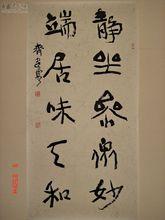 静坐参众妙
端居味天和